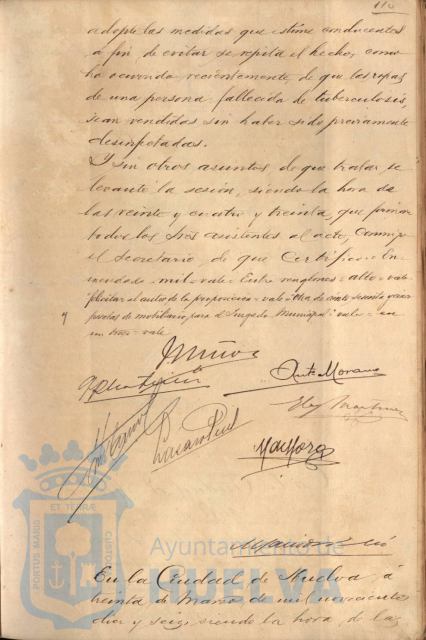 110
adopte las medidas que estime conducentes
á fin de evitar se repita el hecho, como
ha ocurrido recientemente, de que las ropas
de una persona fallecida de tuberculosis,
sean vendidas sin haber sido previamente
desinfectadas.
Y sin otros asuntos de que tratar, se
levanta la sesión, siendo la hora de
las veinte y cuatro y treinta, que firman
todos los Sres asistentes al acto, conmigo
el secretario, de que certifico = En
mendado = mil = vale = Entre renglones = alto = vale
felicitar al autor de la proposición = vale =
pesetas de mobiliario para el Juzgado Municipal = vale =
un = vale
Muñoz
Ant. Morano
Martinez
Mayor
ET TERRÆ
PORTUS MARIS
CUSTODI
Ayuntamiento de
HUELVA
En la Ciudad de Huelva, á
treinta de Marzo de mil novecientos
diez y seis, siendo la hora de las